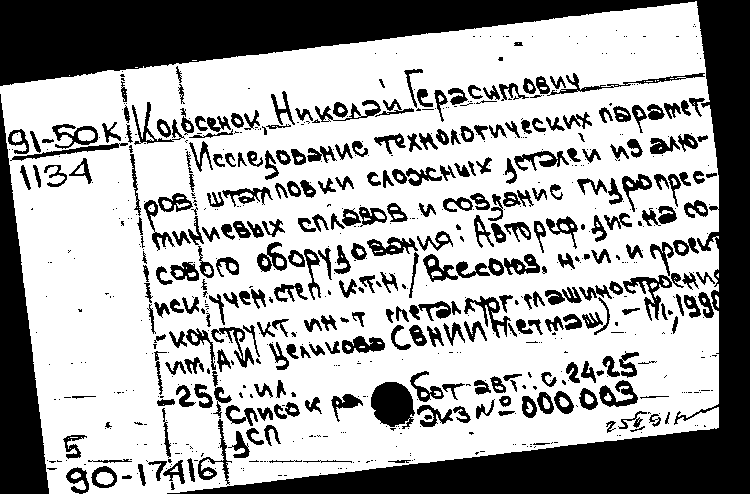 91-50к Колосенок, Николай Герасимович
1134 Исследование технологических парамет-
ров штамповки сложных деталей из алю-
миниевых сплавов и создание гидропрес-
сового оборудования: Автореф. дис. на со-
иск. учен. степ. к.т.н. / Всесоюз. н.-и. и проект
-конструкт. ин-т металлург. машиностроения
им. А.И. Целикова (ВНИИМетмаш). - М., 1990
-25с.: ил.
Список работ авт.: с. 24-25
Экз № 000 003
ДСП
5
90-17416